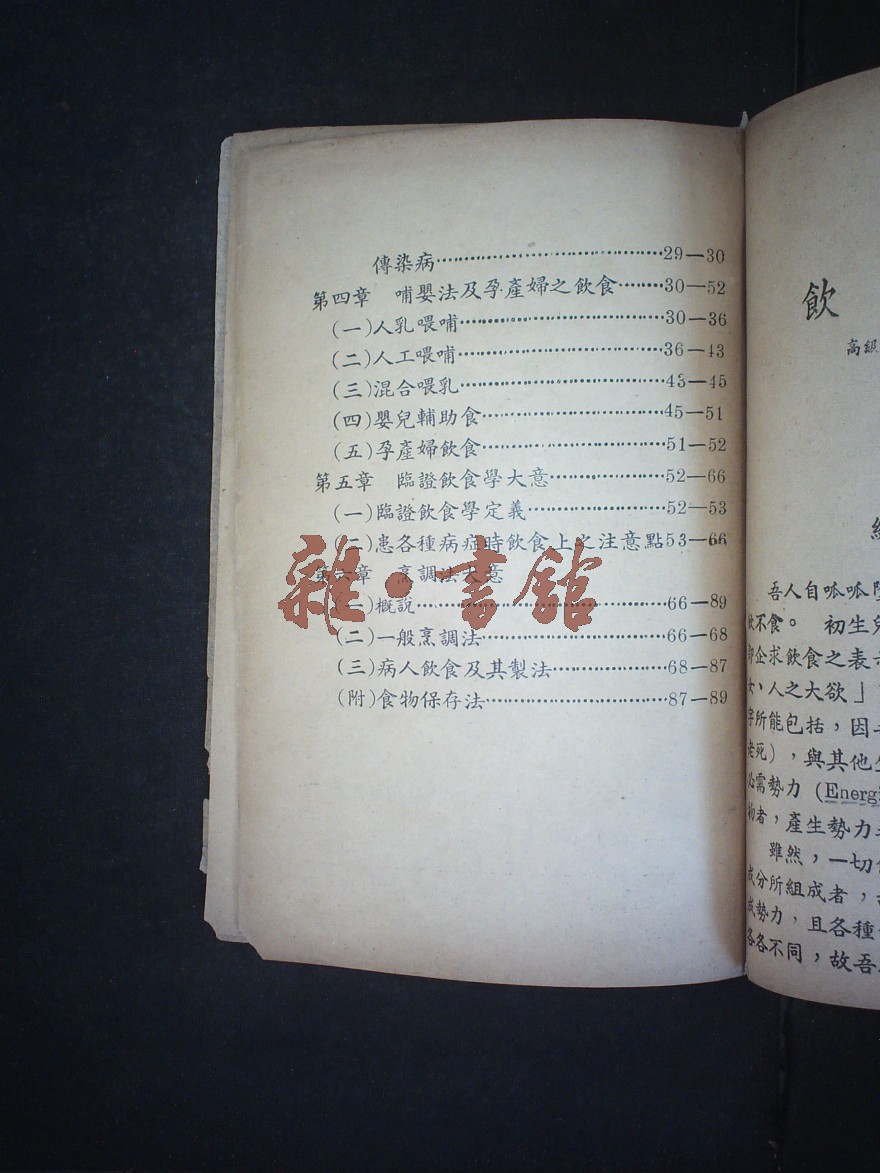 傳染病………………………………29—30
第四章　哺嬰法及孕產婦之飲食………30—52
(一)人乳喂哺……………………………30—36
(二)人工喂哺……………………………36—43
(三)混合喂乳……………………………43—45
(四)嬰兒輔助食…………………………45—51
(五)孕產婦飲食…………………………51—52
第五章　臨證飲食學大意………………52—66
(一)臨證飲食學定義……………………52—53
(二)患各種病症時飲食上之注意點53—66
第六章　烹調法大意
(一)概說…………………………………66—89
(二)一般烹調法…………………………66—68
(三)病人飲食及其製法…………………68—87
(附)食物保存法…………………………87—89
雜·書館
飲
高級
吾人自呱呱墜
飲不食。　初生兒
卽企求飲食之表
女、人之大欲」
字所能包括，因
老死)，與其他生
必需勢力 (Energ
物者，產生勢力
雖然，一切食
成分所組成者，
成勢力，且各種
各各不同，故吾